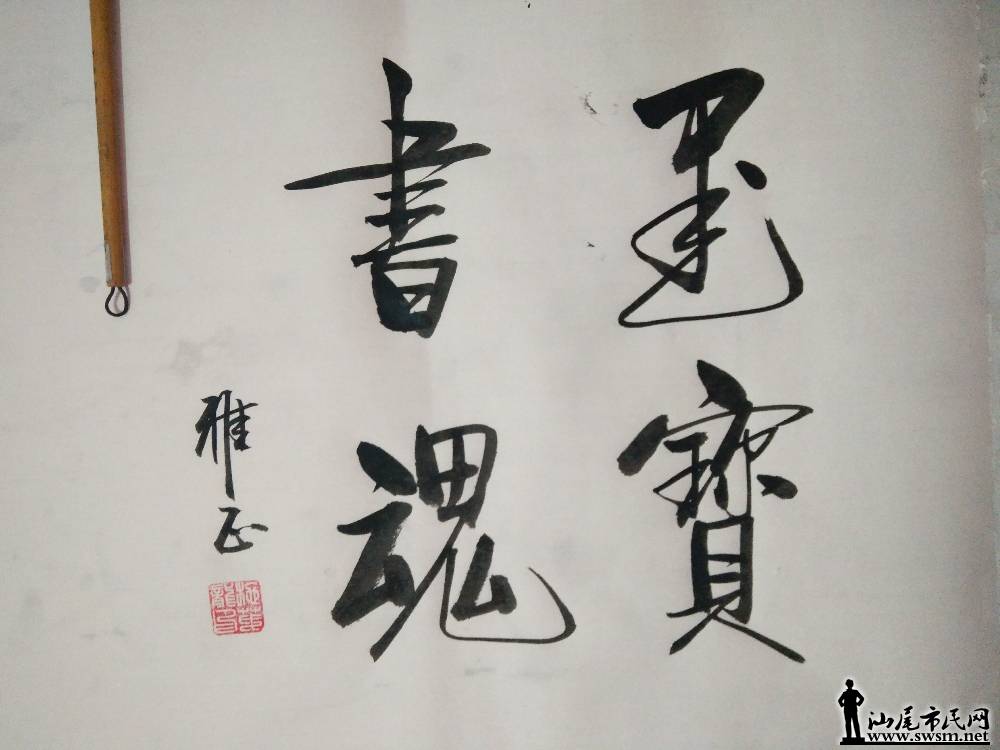 墨寶
書魂
雅正
汕尾市民网
www.swsm.net